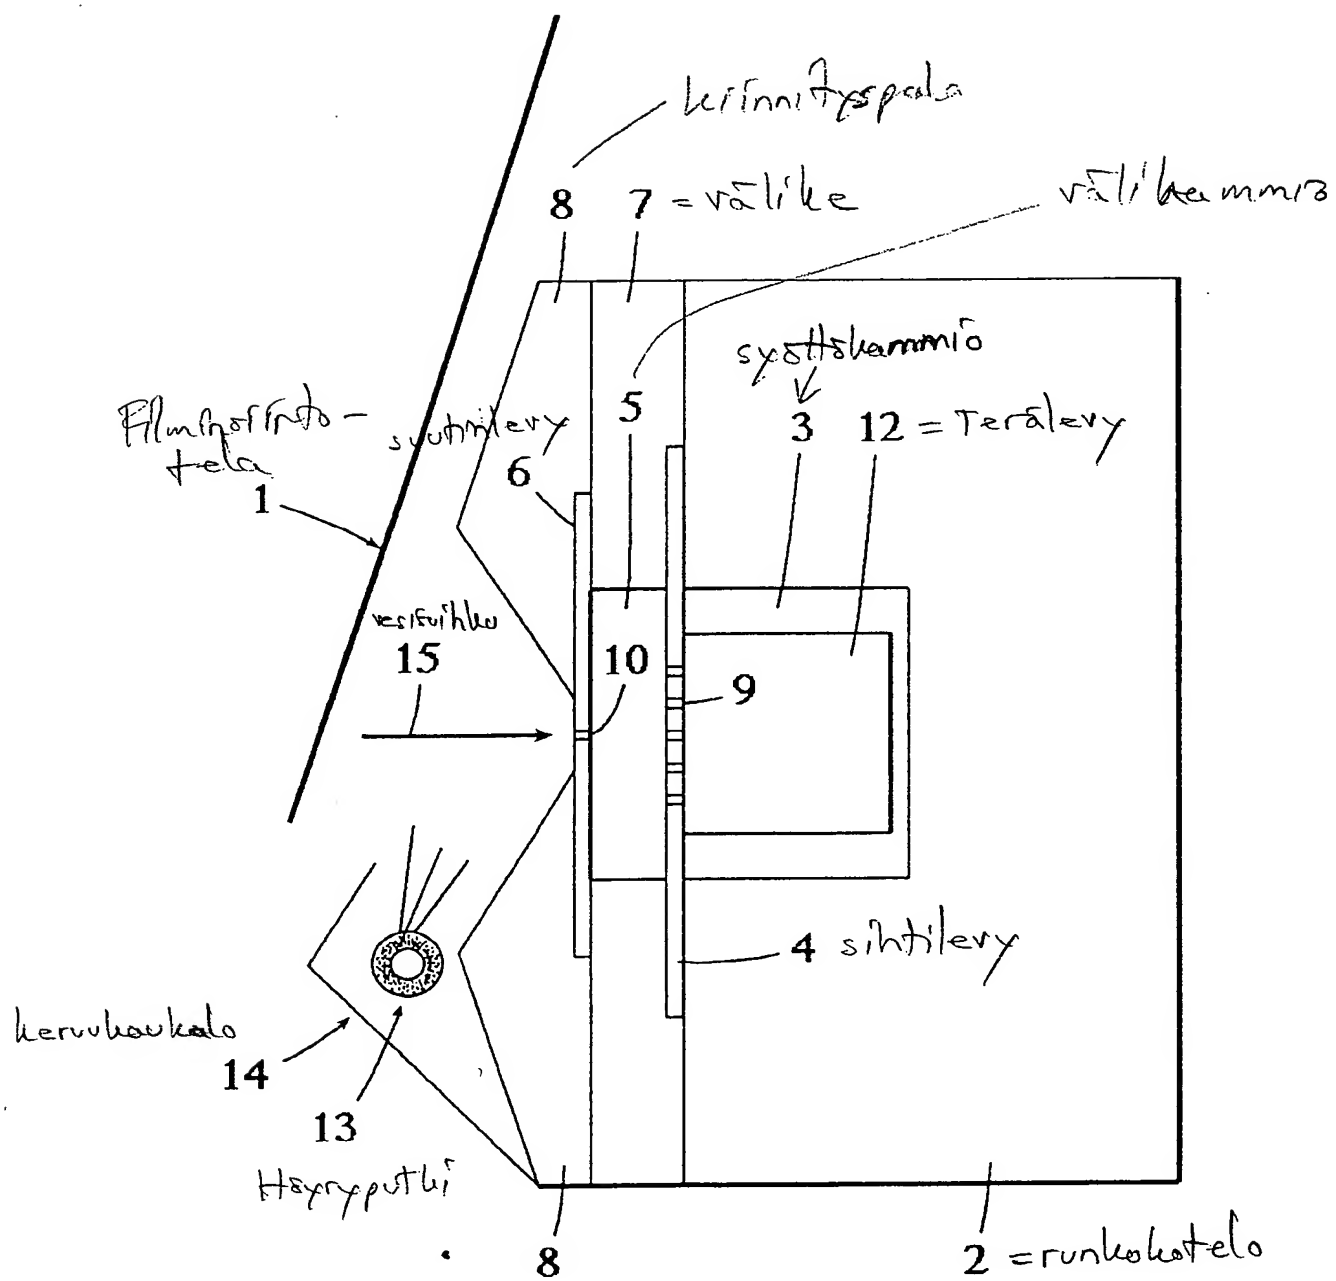 kiinnityspala
8 7 = välike
välikammio
syöttökammio
Filminsiirto-
tela
suutinlevy
5
3 12 = Terälevy
6
1
vesisuihku
15
10
9
4 sihtilevy
keruukaukalo
14
13
Höyryputki
8
2 = runkokotelo